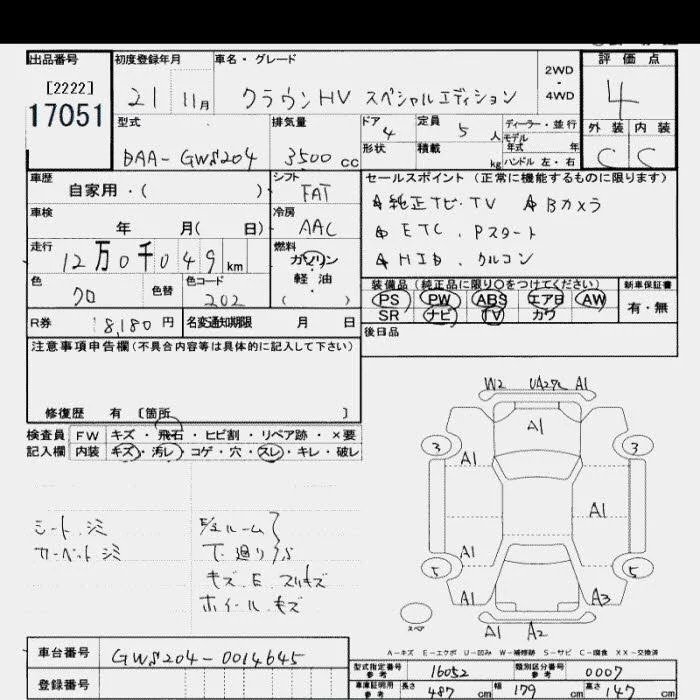 出品番号 初度登録年月 車名・グレード 評価点
[2222] 2WD
17051 21 11月 クラウンHV スペシャルエディション ・ 4
4WD
型式 排気量 ドア 4 定員 5人 ディーラー・並行 外装 内装
モデル年式 年
DAA-GWS204 3500cc 形状 積載 kg ハンドル 左・右 C C
車歴 シフト セールスポイント (正常に機能するものに限ります)
自家用・( ) FAT ☆純正ナビ・TV ☆Bカメラ
車検 冷房 ☆ETC、Pスタート
年 月( 日) AAC ☆HID、クルコン
走行 燃料
12万0千049km ガソリン
・
色 色替 色コード 軽油 装備品 (純正品に限り○をつけてください) 新車保証書
クロ 202 ( ) PS PW ABS エアB AW 有・無
SR ナビ TV カワ
R券 18,180円 名変通知期限 月 日 後日品
注意事項申告欄 (不具合内容等は具体的に記入して下さい)
修復歴 有 [箇所 ]
検査員 FW キズ・飛石・ヒビ割・リペア跡・×要
記入欄 内装 キズ・汚レ・コゲ・穴・スレ・キレ・破レ
W2 A1
A1
3 3
A1
A1
A1
5 5
A1 A3
スペア
A1 A2
シート シミ
カーペット シミ
下廻り サビ
キズ、E、スリキズ
ホイール、キズ
A-キズ E-エクボ U-凹み W-補修跡 S-サビ C-腐食 XX-交換済
車台番号 GWS204-0014645
登録番号
型式指定番号 参考 16052 類別区分番号 参考 0007
車庫証明用 参考 長さ 487cm 幅 179cm 高さ 147cm